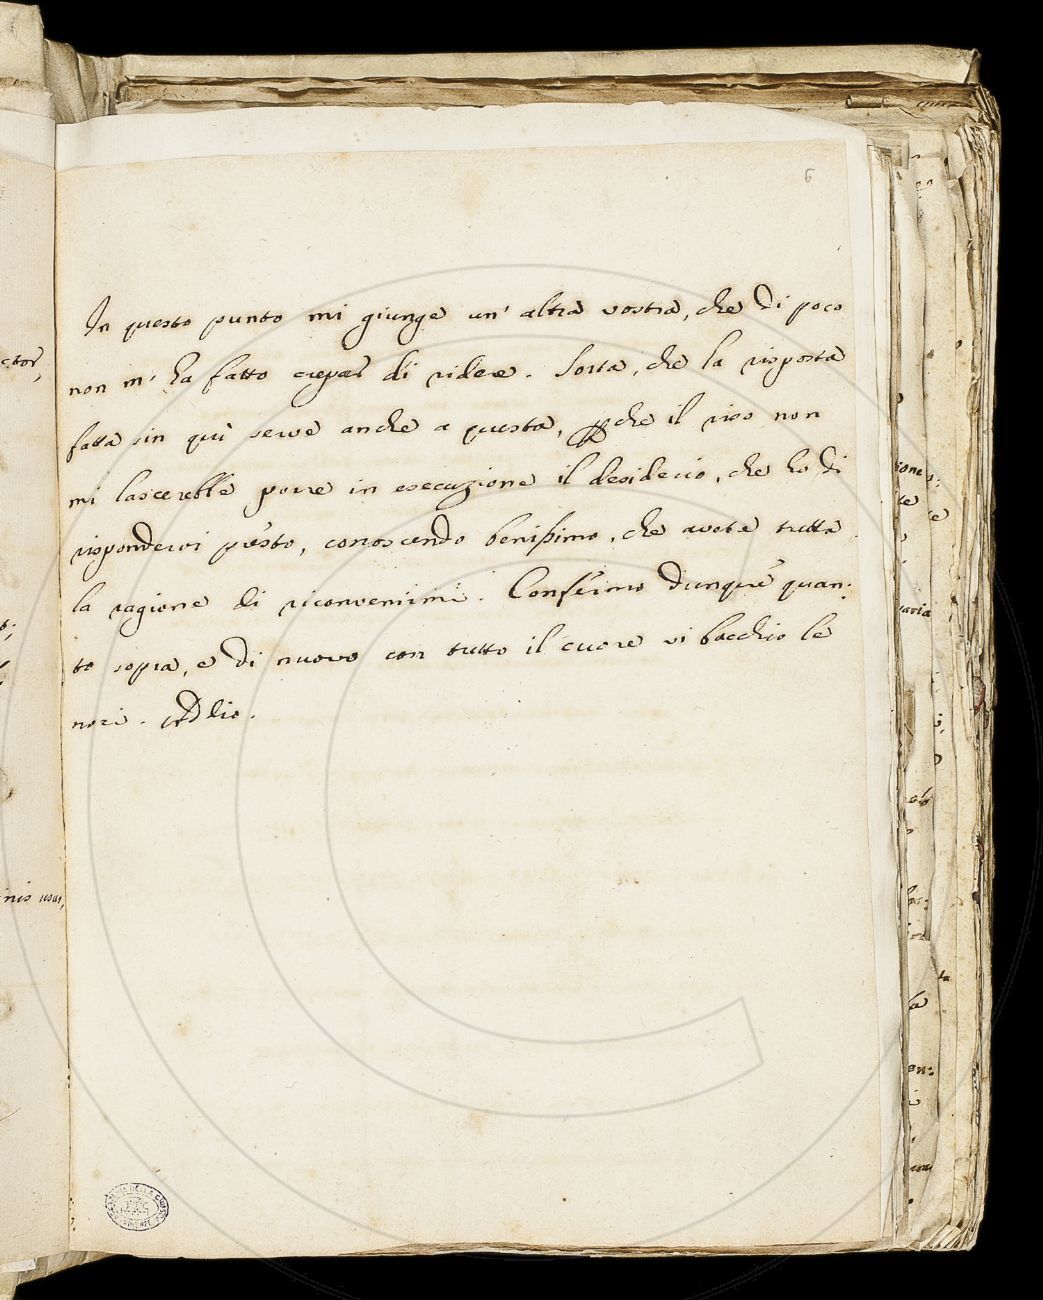 6
In questo punto mi giunge un' altra vostra, che di poco
non m' ha fatto crepar di ridere. Sorta, che la risposta
fatta sin quì serve anche a questa, pche il riso non
mi lascerebbe porre in esecuzione il desiderio, che ho di
rispondervi presto, conoscendo benissimo, che avete tutta
la ragione di riconvenirmi. Confermo dunque quan:
to sopra, e di nuovo con tutto il cuore vi bacchio le
nori. Addio.
ctor,
nis usus,